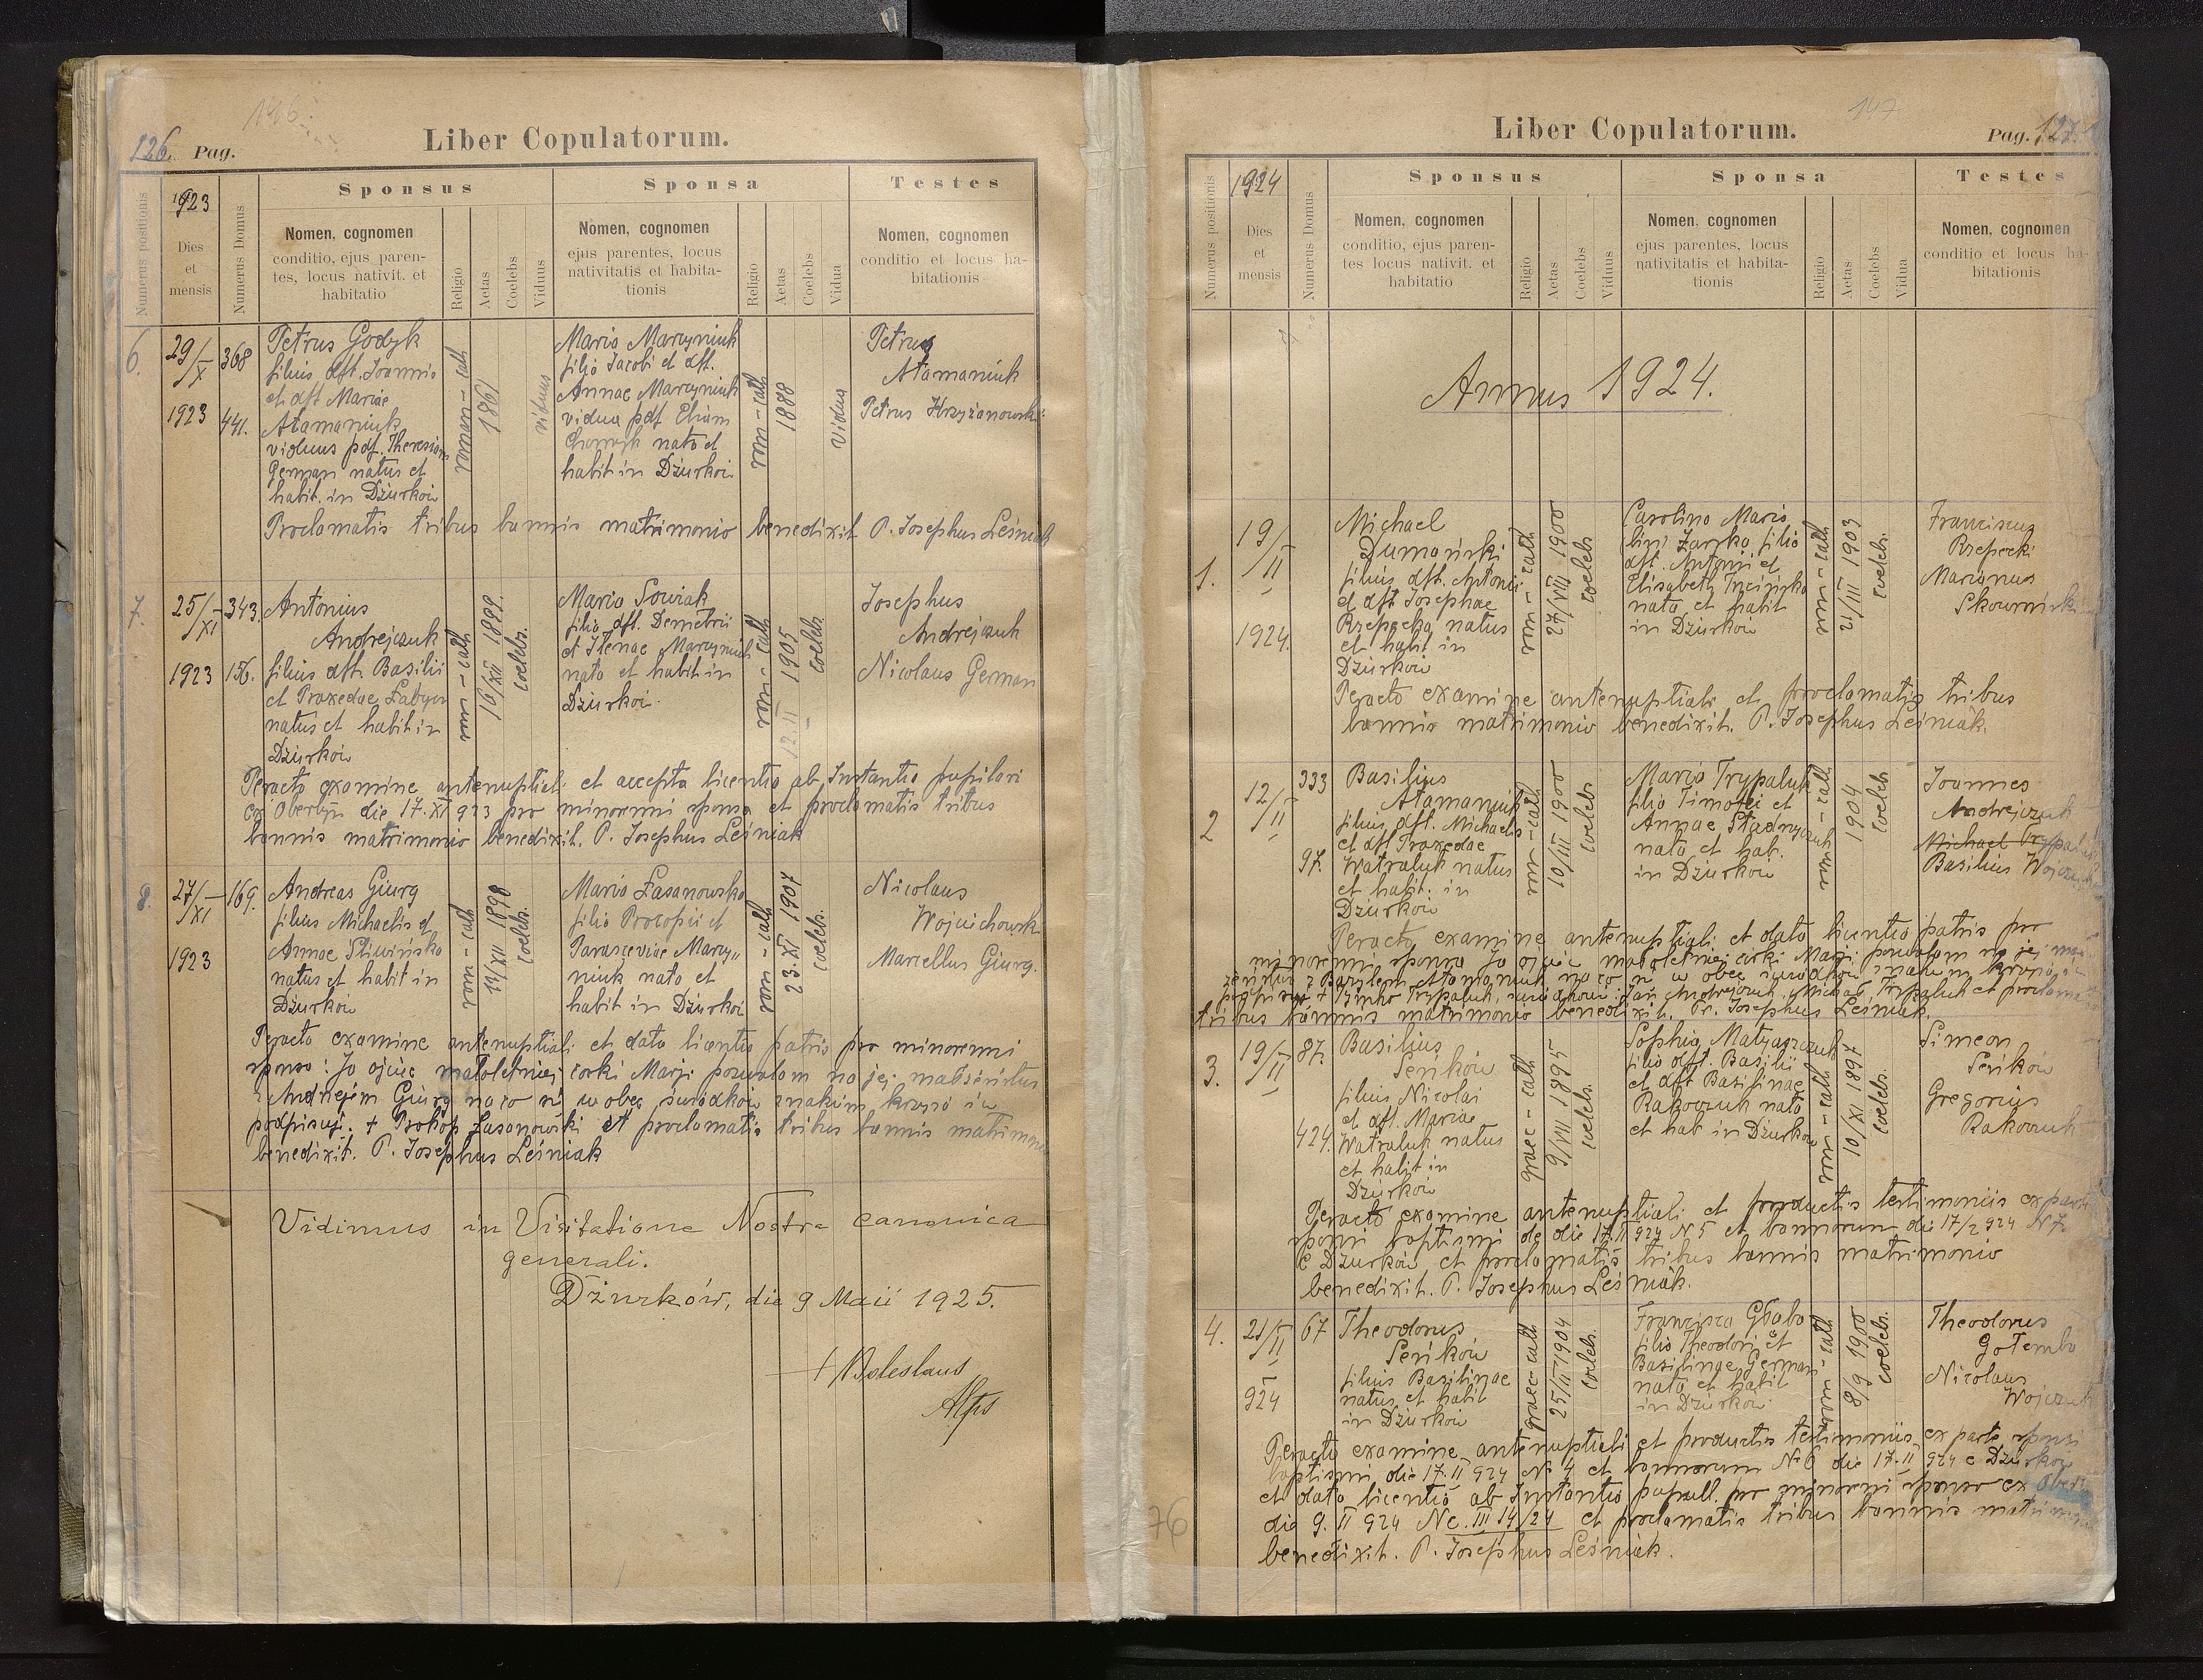 146
126. Pag.
Liber Copulatorum.
Numerus positionis
1923
Dies
et
mensis
Numerus Domus
Sponsus
Nomen, cognomen
conditio, ejus paren-
tes, locus nativit. et
habitatio
Religio
Aetas
Coelebs
Viduus
Sponsa
Nomen, cognomen
ejus parentes, locus
nativitatis et habita-
tionis
Religio
Aetas
Coelebs
Vidua
Testes
Nomen, cognomen
conditio et locus ha-
bitationis
6.
29/X
1923
368
441.
Petrus Godyk
filius dft. Joannis
et dft Mariae
Atamaniuk
viduus pdf. Theresiam
German natus et
habit. in Dżurków
roman-cath
1861
viduus
Maria Marcyniuk
filia Jacobi et dft.
Annae Marcyniuk
vidua pdf Eliam
nata et
habit in Dżurków
rom-cath
1888
vidua
Petrus
Atamaniuk
Petrus Krzyżanowski
Proclamatis tribus bannis matrimonio benedixit P. Josephus Leśniak
7.
25/XI
1923
343.
156.
Antonius
Andrejczuk
filius dft. Basilii
et Praxedae Łabyn
natus et habit in
Dżurków
rom-cath
16/XII 1899
coelebs.
Maria Sowiak
filia dft. Demetrii
et Ilenae Marcyniuk
nata et habit in
Dżurków.
rom-cath
12.II 1905
coelebs
Josephus
Andrejczuk
Nicolaus German
Peracto examine antenuptiali et accepta licentia ab Instantia pupilari
ex Obertyn die 17.XI 923 pro minorenni sponsa et proclamatis tribus
bannis matrimonio benedixit. P. Josephus Leśniak
8.
27/XI
1923
169.
Andreas Giurg
filius Michaelis et
Annae Śliwińska
natus et habit in
Dżurków
rom-cath
14/XII 1898
coelebs.
Maria Łasanowska
filia Procopii et
Parasceviae Marcy„
niuk nata et
habit in Dżurków
rom-cath
23.XI 1907
coelebs.
Nicolaus
Wojciechowski
Marcellus Giurg.
Peracto examine antenuptiali et data licentia patris pro minorenni
sponsa: Ja ojciec małoletniej córki Marji pozwalam na jej małżeństwo
z Andrejem Giurg na co się w obec świadków znakiem krzyża św
podpisuję. + Prokop Łasanowski et proclamatis tribus bannis matrimonio
benedixit. P. Josephus Leśniak
Vidimus in Visitatione Nostra canonica
generali.
Dżurków, die 9 Maii 1925.
+ Boleslaus
147
Liber Copulatorum.
Pag. 127.
Numerus positionis
1924
Dies
et
mensis
Numerus Domus
Sponsus
Nomen, cognomen
conditio, ejus paren-
tes locus nativit. et
habitatio
Religio
Aetas
Coelebs
Viduus
Sponsa
Nomen, cognomen
ejus parentes, locus
nativitatis et habita-
tionis
Religio
Aetas
Coelebs
Vidua
Testes
Nomen, cognomen
conditio et locus ha-
bitationis
Annus 1924.
1.
19/II
1924.
Michael
Dumański
filius dft. Antonii
et dft Josephae
Rzepecka natus
et habit in
Dżurków
rom-cath
27/VIII 1900
coelebs
Carolina Maria
(bin) Zarzka filia
dft. Antonii et
Elisabeth
nata et habit
in Dżurków
rom-cath
21/III 1903
coelebs.
Franciscus
Rzepecki
Marianus
Skowroński
Peracto examine antenuptiali et proclamatis tribus
bannis matrimonio benedixit. P. Josephus Leśniak.
2
12/II
333
97.
Basilius
Atamaniuk
filius dft. Michaelis
et dft Praxedae
Watraluk natus
et habit. in
Dżurków
rom-cath
10/III 1900
coelebs
Maria Trypaluk
filia Timofei et
Annae Stadnyczuk
nata et hab.
in Dżurków
rom-cath
1904
coelebs
Joannes
Andrejczuk
Michael Trypaluk
Basilius Wojczuk
Peracto examine antenuptiali et data licentia patris pro
minorenni sponsa Ja ojciec małoletniej córki Marji pozwalam na jej mał
żeństwo z Bazylem Atamaniuk na co się w obec świadków znakiem krzyża św
podpisuję + Tymko Trypaluk, świadkowie: Jan Andrejczuk, Michał Trypaluk et proclamatis
tribus bannis matrimonio benedixit. P. Josephus Leśniak.
3.
19/II
87.
424.
Basilius
Seńków
filius Nicolai
et dft. Mariae
Watraluk natus
et habit in
Dżurków
graec-cath
9/VII 1895
coelebs
Sophia Matyaszczuk
filia dft. Basilii
et dft Basilinae
Rakowczuk nata
et hab in Dżurków
rom-cath
10/XI 1897
coelebs.
Simeon
Seńków
Gregorius
Rakowczuk
Peracto examine antenuptiali et productis testimoniis ex parte
sponsi baptismi de die 17.II 924 N 5 et bannorum die 17/2 924 N 7.
e Dżurków et proclamatis tribus bannis matrimonio
benedixit. P. Josephus Leśniak.
4.
21/II
924
67
Theodorus
Seńków
filius Basilinae
natus et habit
in Dżurków
graec-cath
25/III 1904
coelebs.
Francisca Gbaba
filia Theodori et
Basilinae German
nata et habit
in Dżurków
rom-cath
8/9 1900
coelebs.
Theodorus
Gołemba
Nicolaus
Wojczuk
Peracto examine antenuptiali et productis testimoniis ex parte sponsi
baptismi die 17.II 924 N 4 et bannorum N 6 die 17.II 924 e Dżurków
et data licentia ab Instantia pupill. pro minorenni sponso ex Obertyn
die 9.II 924 Nc.III 14/24 et proclamatis tribus bannis matrimonio
benedixit. P. Josephus Leśniak.
76